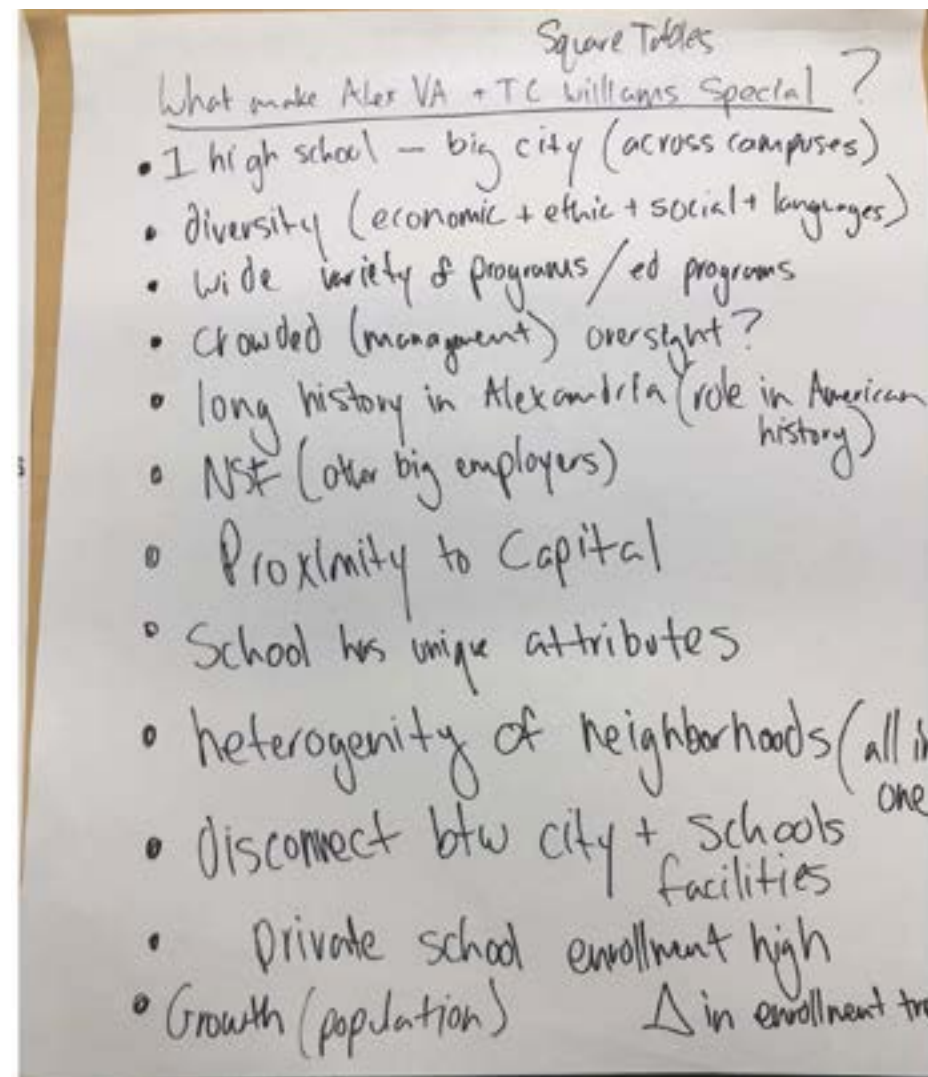 Square Tables
What make Alex VA + TC Williams Special ?
• 1 high school – big city (across campuses)
• diversity (economic + ethic + social + languages)
• Wide variety of programs / ed programs
• Crowded (managment) oversight?
• long history in Alexandria (role in American
history)
• NSF (other big employers)
• Proximity to Capital
• School has unique attributes
• heterogenity of neighborhoods (all in
one
• disconnect btw city + schools
facilities
• private school enrollment high
• Growth (population) Δ in enrollment